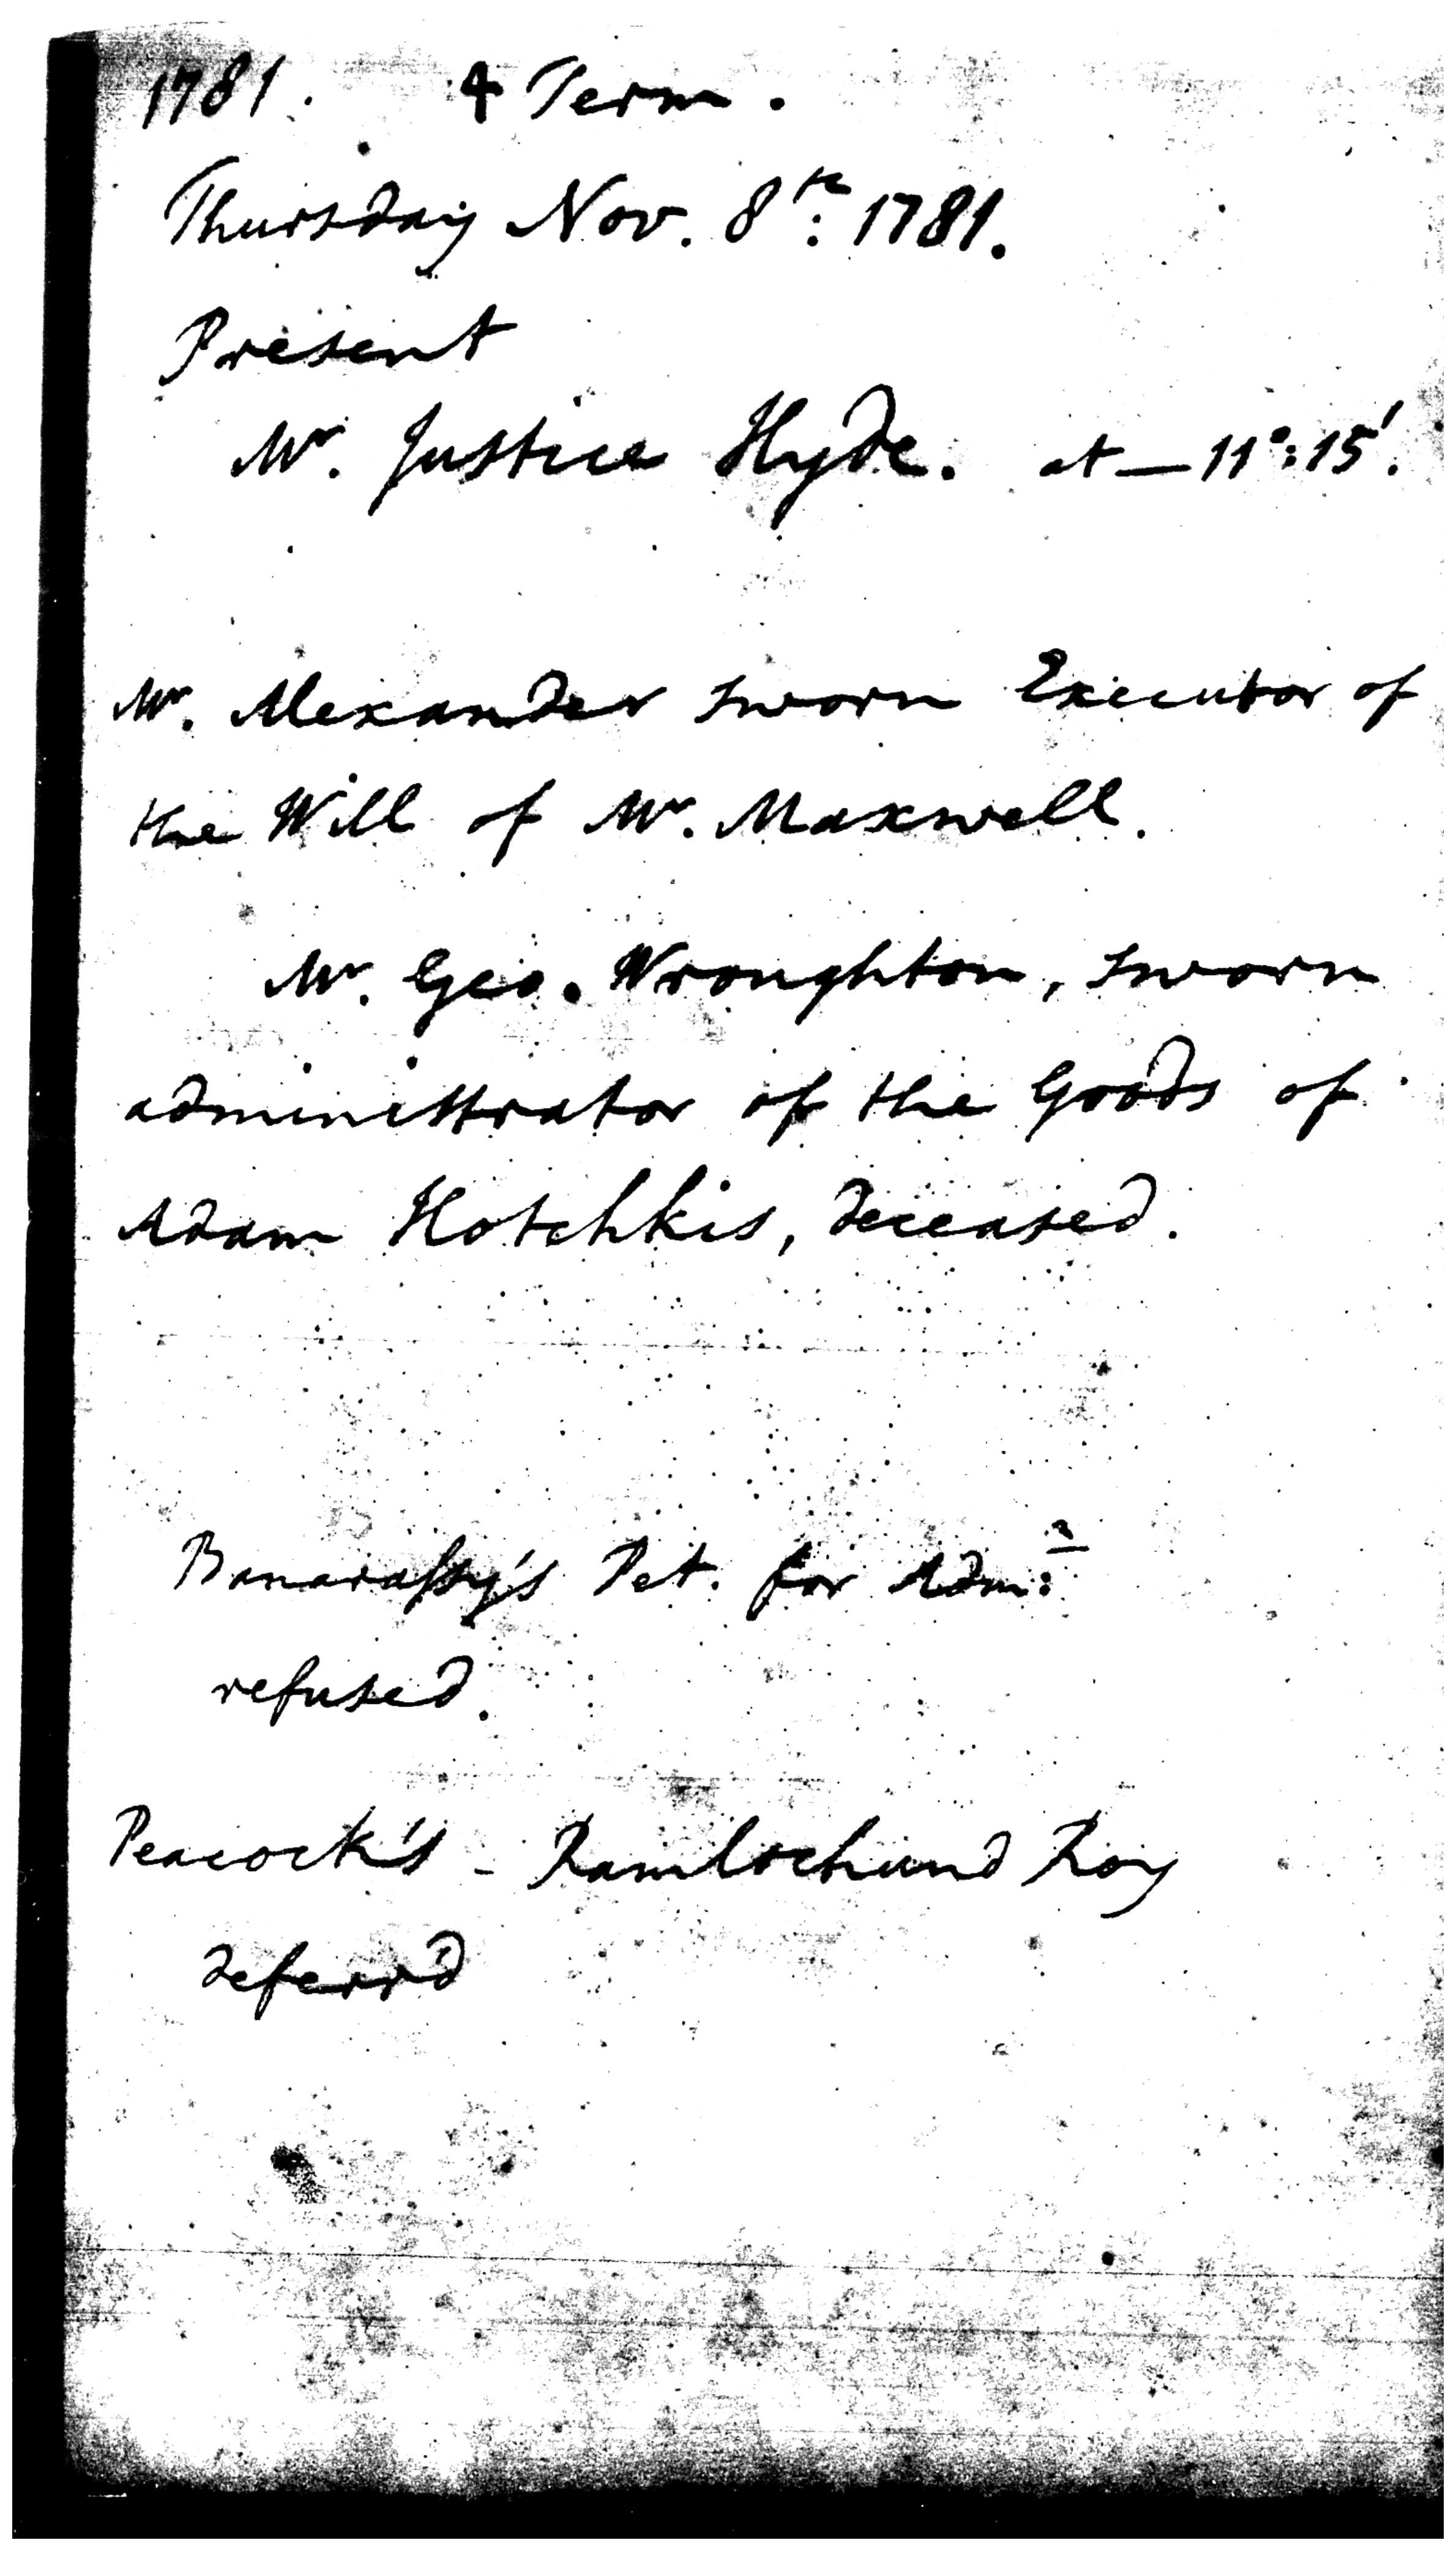 1781. 4 Term.
Thursday Nov. 8th: 1781.
Present
Mr. Justice Hyde. at — 11°: 15'.
Mr. Alexander sworn Executor of
the Will of Mr. Maxwell.
Mr. Geo. Wroughton, sworn
administrator of the Goods of
Adam Hotchkis, deceased.
Banarassy's Pet. for Adm:n
refused.
Peacock's - Ramlochund Roy
deferr'd